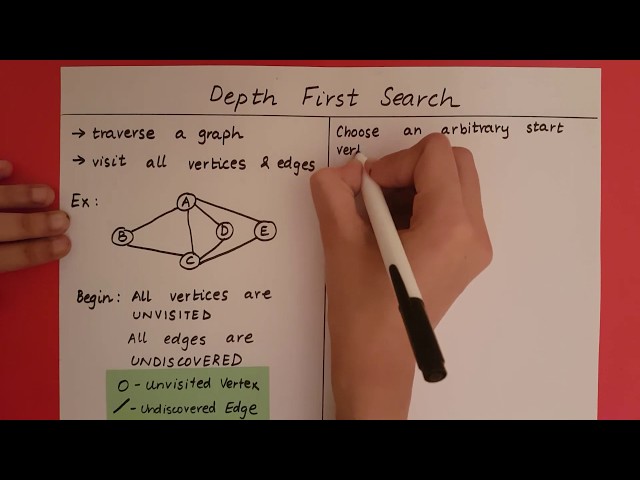 Depth First Search
→ traverse a graph
→ visit all vertices & edges
Ex:
A
B
D
E
C
Begin: All vertices are
UNVISITED
All edges are
UNDISCOVERED
O - Unvisited Vertex
/ - Undiscovered Edge
Choose an arbitrary start
ver